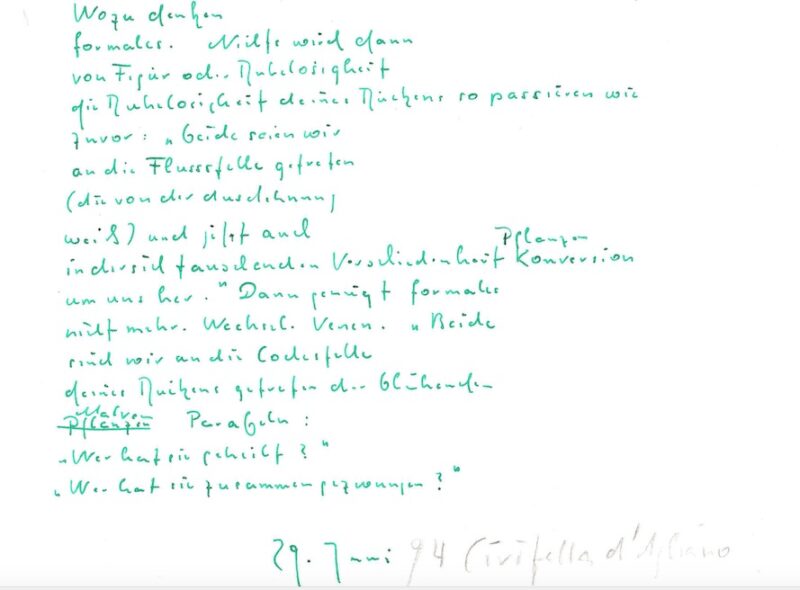 Wozu denken
formales. Nichts wird dann
von Figur oder Ruhelosigkeit
die Ruhelosigkeit deines Rückens so passieren wie
zuvor: „Beide seien wir
an die Flussstelle getreten
(die von der Ausdehnung
weiß) und jetzt auch
Pflanzen
in der sich tauschenden Verschiedenheit Konversion
um uns her.“ Dann genügt formales
nicht mehr. Wechsel. Venen. „Beide
sind wir an die Codestelle
deines Rückens getreten der blühenden
Malven
Pflanzen Parabeln:
„Wer hat sie geteilt?“
„Wer hat sie zusammengezwungen?“
29. Juni 94 Civitella d'Agliano